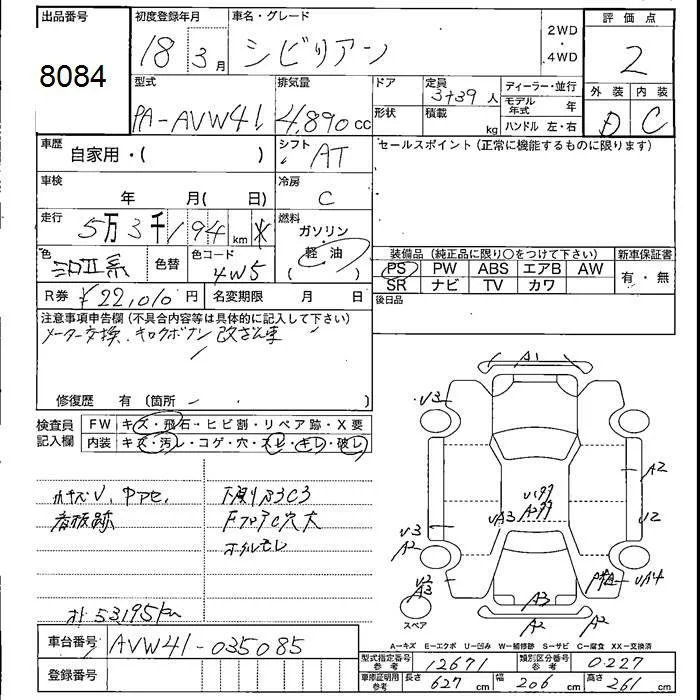 出品番号 初度登録年月 車名・グレード 2WD ・ 4WD 評価点
8084 18 3月 シビリアン 2
外装 内装
D C
型式 排気量 ドア 定員 3+39人 ディーラー・並行
PA-AVW41 4,890cc 形状 積載 kg モデル年式 年
ハンドル 左・右
車歴 自家用・( ) シフト AT セールスポイント(正常に機能するものに限ります)
車検 年 月( 日) 冷房 C
走行 5万3千194km 燃料 ガソリン・軽油 ( )
色 系 色替 色コード 4W5
装備品(純正品に限り○をつけて下さい) 新車保証書
PS PW ABS エアB AW 有・無
SR ナビ TV カワ
R券 ¥22,010円 名変期限 月 日 後日品
注意事項申告欄(不具合内容等は具体的に記入して下さい)
メーター交換、キロクボナシ 改ざん車
修復歴 有(箇所 )
検査員記入欄 FW キズ・飛石・ヒビ割・リペア跡・X要
内装 キズ・汚レ・コゲ・穴・スレ・キレ・破レ
小キズV、
看板跡 FフロアC穴大
53195km
車台番号 AVW41-035085
登録番号
A1
V3
A2
V2
V3
A2
VA3
V2
A3
VA4
A3
A2
A2
スペア
A-キズ E-エクボ U-凹み W-補修跡 S-サビ C-腐食 XX-交換済
型式指定番号 参考 12671 類別区分番号 参考 0227
車庫証明用 参考 長さ 627cm 幅 206cm 高さ 261cm